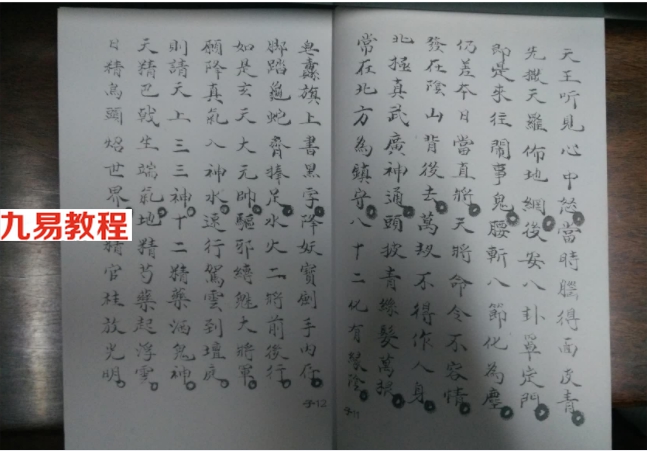 天王听見心中怒當時腮得面皮青
先撒天羅佈地網後安八卦罩定門
即是來往鬧事鬼腰斬八節化為塵
仍差本日當直將天將命令不容情
發在陰山背後去萬劫不得作人身
北極真武廣神通頭披青絲髮萬
常在北方為鎮守八十二化有
411
皂纛旗上書黑字降妖寶劍手內
脚踏龜蛇齊捧足水火二將前後行
如是玄天大元帥驅邪縛魅大將軍
願降真氣八神水速行駕雲到壇庭
則請天上三三神十二精藥酒鬼神
天精巴戟生端氣地精芍藥起浮雲
日精烏頭焰世界精官桂放光明
412
九易教程